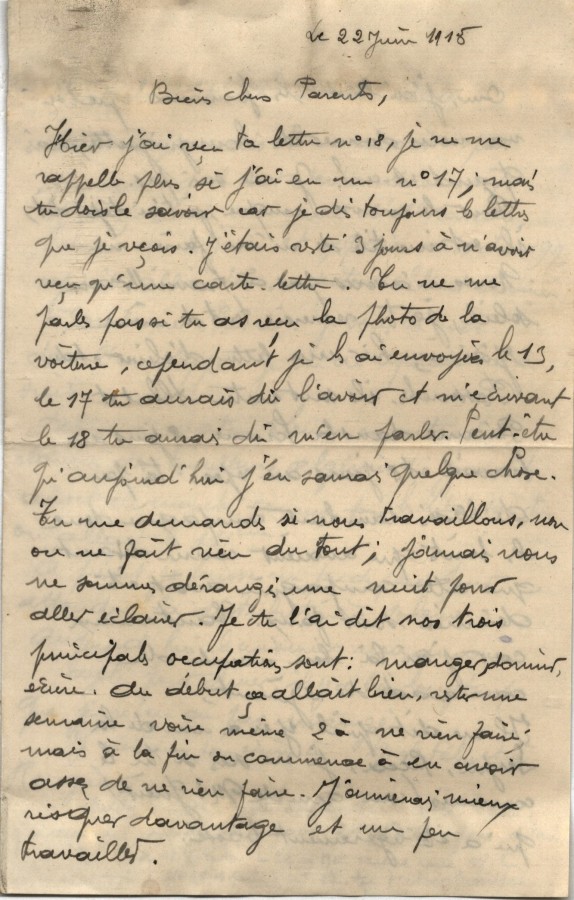 Le 22 Juin 1915
Biens chers Parents,
Hier j'ai reçu ta lettre n° 18, je ne me
rappelle plus si j'ai eu un n° 17; mais
tu dois le savoir car je dis toujours les lettres
que je reçois. J'étais resté 3 jours à n'avoir
reçu qu'une carte-lettre. Tu ne me
parles pas si tu as reçu la photo de la
voiture, cependant je l'ai envoyée le 13,
le 17 tu aurais dû l'avoir et m'écrivant
le 18 tu aurais dû m'en parler. Peut-être
qu'aujourd'hui j'en saurai quelque chose.
Tu me demandes si nous travaillons, non
on ne fait rien du tout; jamais nous
ne sommes dérangé une nuit pour
aller éclairer. Je te l'ai dit nos trois
principales occupations sont: manger, dormir,
écrire. Au début ça allait bien, rester une
semaine voire même 2 à ne rien faire
mais à la fin on commence à en avoir
assez de ne rien faire. J'aimerais mieux
risquer davantage et un peu
travailler.